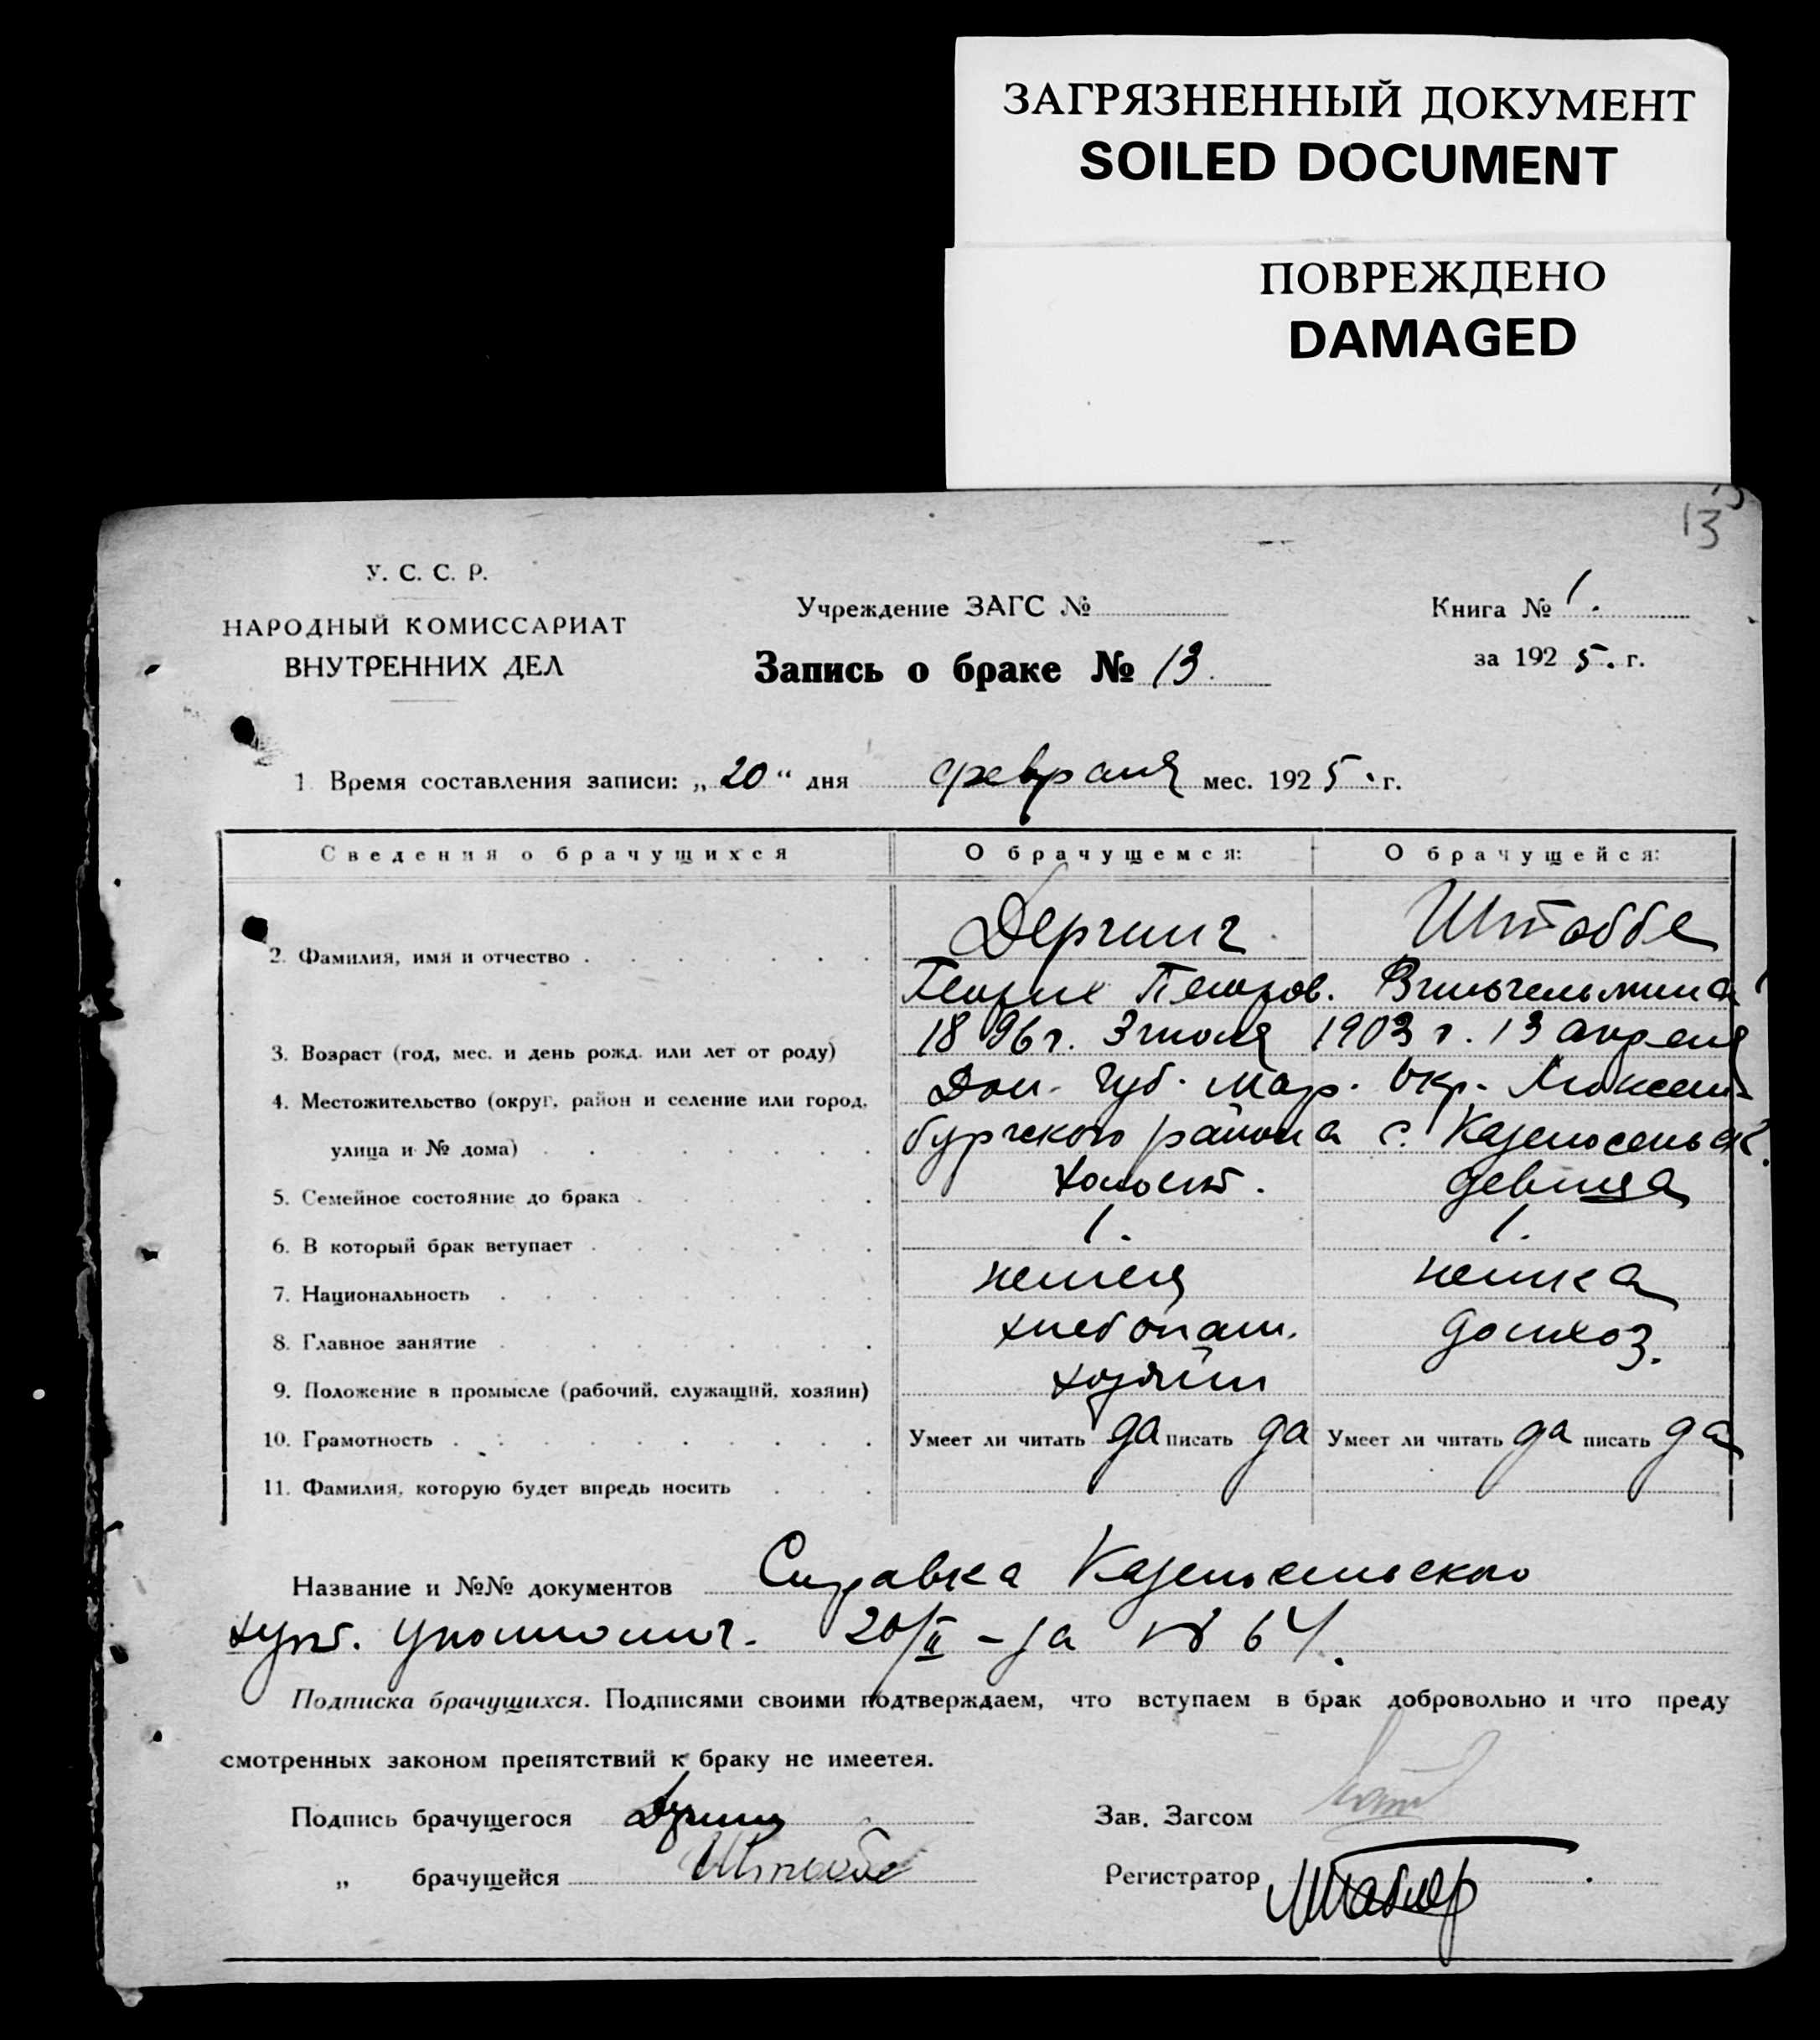 ЗАГРЯЗНЕННЫЙ ДОКУМЕНТ
SOILED DOCUMENT
ПОВРЕЖДЕНО
DAMAGED
13
У. С. С. Р.
НАРОДНЫЙ КОМИССАРИАТ
ВНУТРЕННИХ ДЕЛ
Учреждение ЗАГС №
Запись о браке № 13.
Книга № 1.
за 1925. г.
1. Время составления записи: „20“ дня февраля мес. 1925. г.
Сведения о брачущихся О брачущемся: О брачущейся:
2. Фамилия, имя и отчество Деринг Штаббе
Георгие Петров. Вильгельмина
3. Возраст (год, мес. и день рожд. или лет от роду) 1896 г. 3 июля 1903 г. 13 апреля
4. Местожительство (округ, район и селение или город, Дон. Губ. Мар. Окр. Люксем-
улица и № дома) бургского района с.
5. Семейное состояние до брака холост. девица
6. В который брак вступает 1. 1.
7. Национальность немец немка
8. Главное занятие хлебопаш. домхоз.
9. Положение в промысле (рабочий, служащий, хозяин) хозяин
10. Грамотность Умеет ли читать да писать да Умеет ли читать да писать да
11. Фамилия, которую будет впредь носить
Название и №№ документов Справка
хут. уполномоч. 20/II – за № 64.
Подписка брачущихся. Подписями своими подтверждаем, что вступаем в брак добровольно и что преду
смотренных законом препятствий к браку не имеется.
Подпись брачущегося Деринг
„ брачущейся Штаббе
Зав. Загсом
Регистратор